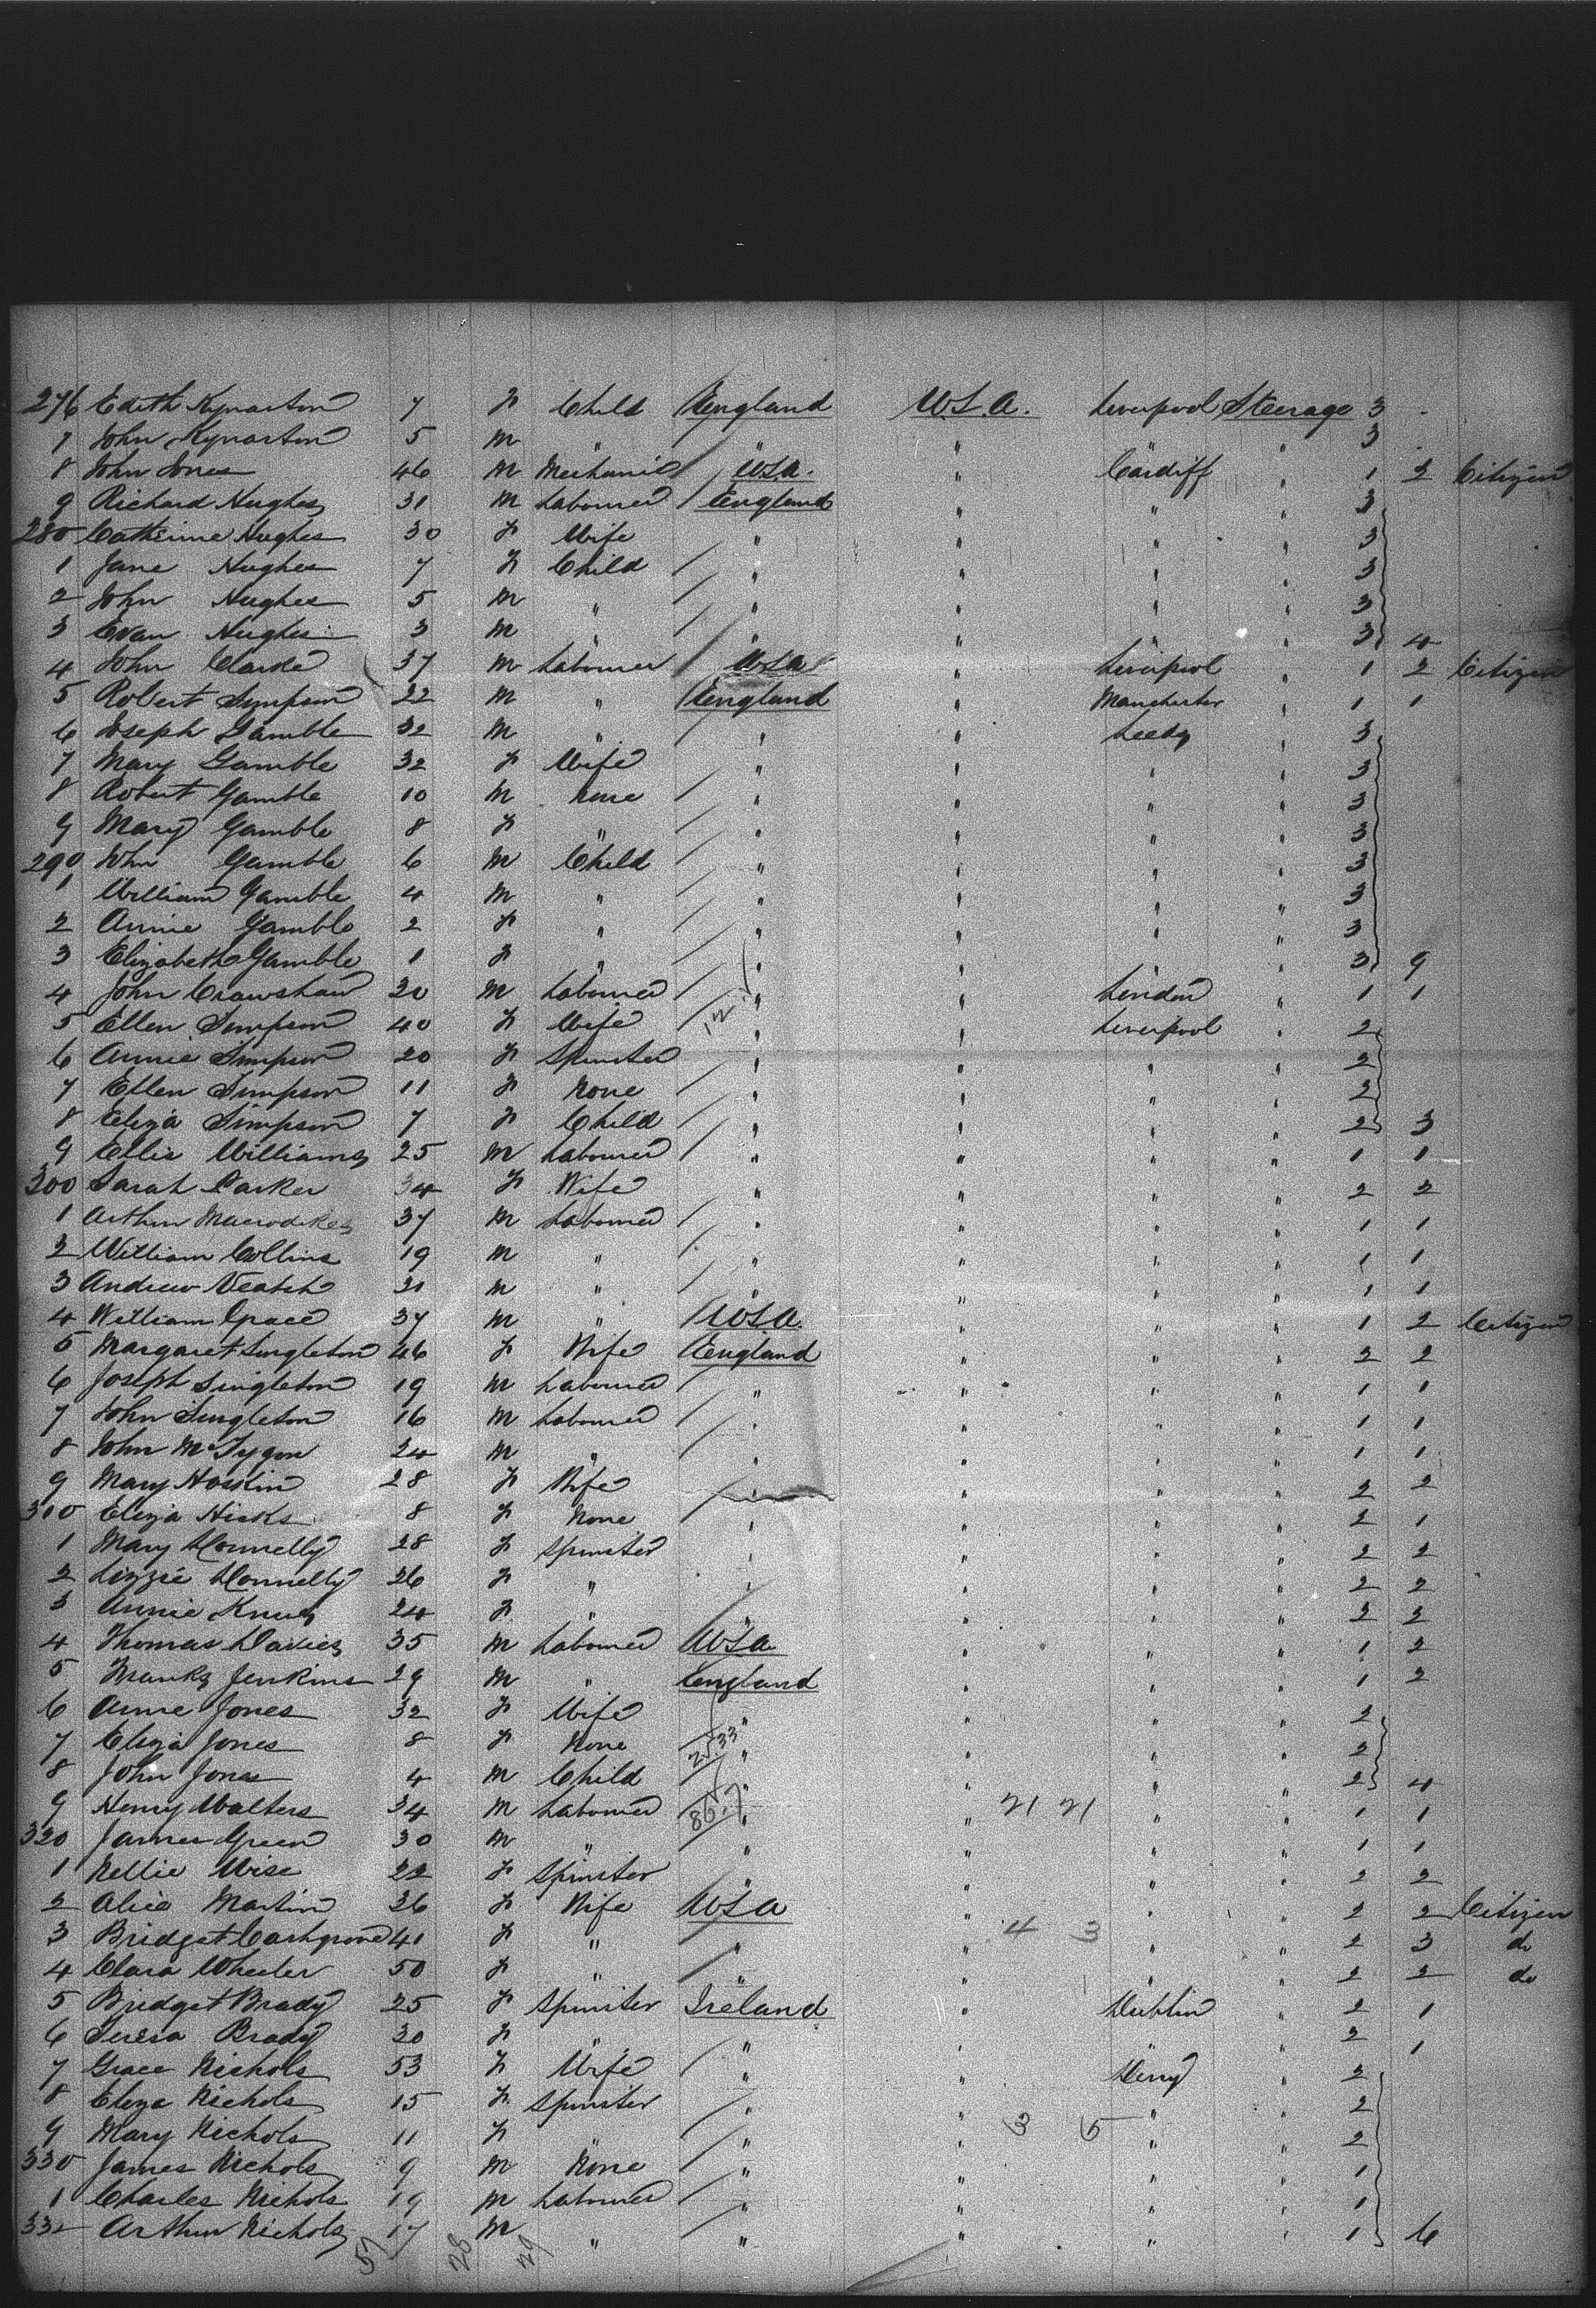 276 Edith Kynaston 7 F Child England U.S.A. Liverpool Steerage 3
7 John Kynaston 5 M " " " " " 3
8 John Jones 46 M Mechanic U.S.A. " Cardiff " 1 2 Citizen
9 Richard Hughes 31 M Labourer England " " " 3
280 Catherine Hughes 30 F Wife " " " " 3
1 Jane Hughes 7 F Child " " " " 3
2 John Hughes 5 M " " " " " 3
3 Evan Hughes 3 M " " " " " 3 4
4 John Clarke 37 M Labourer U.S.A " Liverpool " 1 2 Citizen
5 Robert Simpson 22 M " England " Manchester " 1 1
6 Joseph Gamble 32 M " " " Leeds " 3
7 Mary Gamble 32 F Wife " " " " 3
8 Robert Gamble 10 M None " " " " 3
9 Mary Gamble 8 F " " " " " 3
290 John Gamble 6 M Child " " " " 3
1 William Gamble 4 M " " " " " 3
2 Annie Gamble 2 F " " " " " 3
3 Elizabeth Gamble 1 F " " " " " 3 9
4 John Crawshaw 20 M Labourer " " London " 1 1
5 Ellen Simpson 40 F Wife " " Liverpool " 2
6 Annie Simpson 20 F Spinster " " " " 2
7 Ellen Simpson 11 F None " " " " 2
8 Eliza Simpson 7 F Child " " " " 2 3
9 Ellis Williams 25 M Labourer " " " " 1 1
300 Sarah Parker 34 F Wife " " " " 2 2
1 Arthur 37 M Labourer " " " " 1 1
2 William Collins 19 M " " " " " 1 1
3 Andrew Veatch 31 M " " " " " 1 1
4 William Grace 37 M " U.S.A " " " 1 2 Citizen
5 Margaret Singleton 46 F Wife England " " " 2 2
6 Joseph Singleton 19 M Labourer " " " " 1 1
7 John Singleton 16 M Labourer " " " " 1 1
8 John 24 M " " " " " 1 1
9 Mary Hoskin 28 F Wife " " " " 2 2
310 Eliza Hicks 8 F None " " " " 2 1
1 Mary Donnelly 28 F Spinster " " " " 2 2
2 Lizzie Donnelly 26 F " " " " " 2 2
3 Annie 24 F " " " " " 2 2
4 Thomas Davies 35 M Labourer U.S.A " " " 1 2
5 Jenkins 29 M " England " " " 1 2
6 Anne Jones 32 F Wife " " " " 2
7 Eliza Jones 8 F None " " " " 2
8 John Jones 4 M Child " " " " 2 4
9 Henry Walters 34 M Labourer " " 21 21 " " 1 1
320 James Green 30 M " " " " " 1 1
1 Nellie Wise 22 F Spinster " " " " 2 2
2 Alice Martin 26 F Wife U.S.A " " " 2 2 Citizen
3 Bridget 41 F " " " 4 3 " " 2 3 do
4 Clara Wheeler 50 F " " " " " 2 2 do
5 Bridget Brady 25 F Spinster Ireland " Dublin " 2 1
6 Teresa Brady 30 F " " " " " 2 1
7 Grace Nichols 53 F Wife " " Derry " 2
8 Eliza Nichols 15 F Spinster " " " " 2
9 Mary Nichols 11 F " " " 3 5 " " 2
330 James Nichols 9 M None " " " " 1
1 Charles Nichols 19 M Labourer " " " " 1
332 Arthur Nichols 17 M " " " " " 1 6
57 28 29